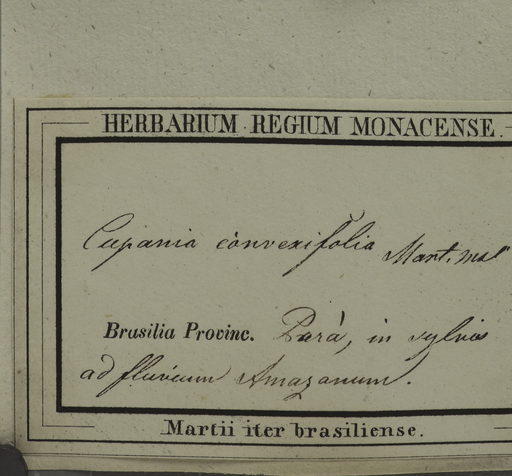 HERBARIUM REGIUM MONACENSE.
Cupania convexifolia Mart. msc
Brasilia Provinc. Parà, in sylvis
ad fluvium Amazonum.
Martii iter brasiliense.